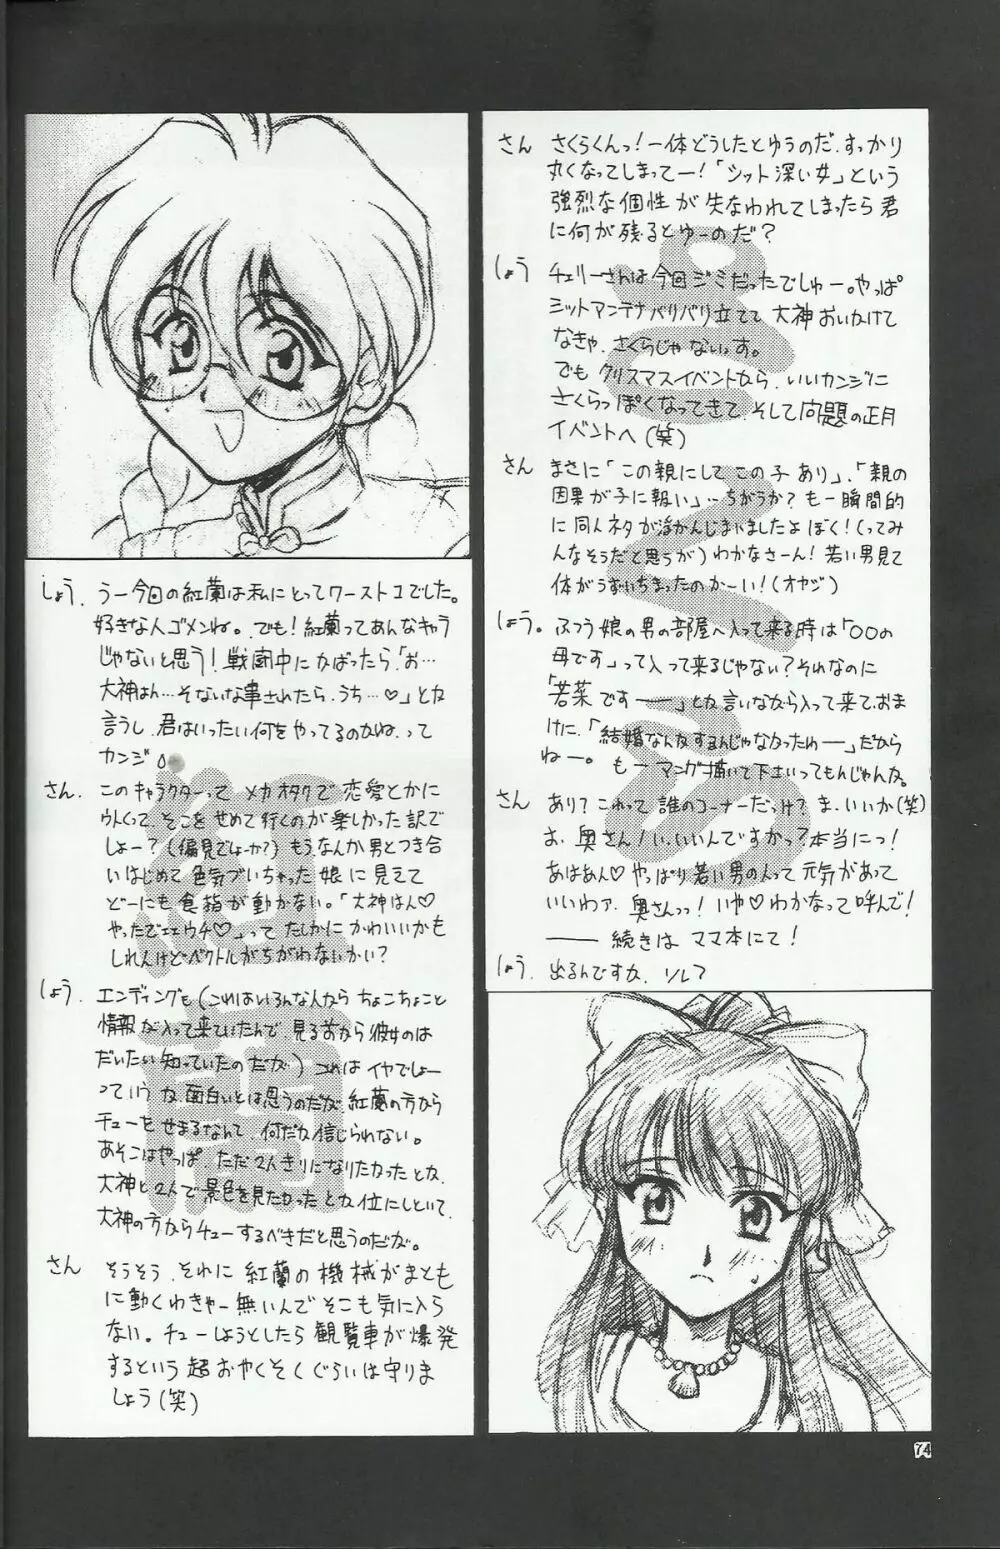 さん さくらくんっ!一体どうしたとゆうのだ、すっかり
丸くなってしまってー!「シット深い女」という
強烈な個性が失なわれてしまったら君
に何が残るとゆーのだ?
しょう チェリーさんは今回ジミだったでしゅー。やっぱ
シットアンテナバリバリ立てて大神おいかけて
なきゃ、さくらじゃないっす。
でもクリスマスイベントから、いいカンジに
さくらっぽくなってきて、そして問題の正月
イベントへ(笑)
さん まさに「この親にしてこの子あり」、「親の
因果が子に報い」…ちがうか?も一瞬間的
に同人ネタが浮かんじまいましたよぼく!(ってみ
んなそうだと思うが)わかなさーん!若い男見て
体がうずいちまったのかーい!(オヤジ)
しょう。ふつう娘の男の部屋へ入って来る時は「○○の
母です」って入って来るじゃない?それなのに
「若菜ですー」とか言いながら入って来ておま
けに、「結婚なんかするんじゃなかったわー」だから
ねー。もーマンガ描いて下さいってもんじゃんか。
さん あり?これって誰のコーナーだっけ?ま、いいか(笑)
お、奥さん!い、いいんですかっ?本当にっ!
あはあん♡やっぱり若い男の人って元気があって
いいわァ、奥さんっっ!いや♡わかなって呼んで!
――続きはママ本にて!
しょう、出るんですか、ソレ?
しょう、うー今回の紅蘭は私にとってワースト1でした。
好きな人ゴメンね。でも!紅蘭ってあんなキャラ
じゃないと思う!戦闘中にかばったら「お…
大神はん…そないな事されたら、うち…♡」とか
言うし、君はいったい何をやってるのかね、って
カンジ。
さん、このキャラクターってメカオタクで恋愛とかに
ウトくって、そこをせめて行くのが楽しかった訳で
しょー?(偏見でしょーか?)もう、なんか男とつき合
いはじめて色気づいちゃった娘に見えて
どーにも食指が動かない。「大神はん♡
やったでエエウチ♡」ってたしかにかわいいかも
しれんけどベクトルがちがわないかい?
しょう、エンディングも(これはいろんな人からちょこちょこと
情報が入って来ていたんで、見る前から彼女のは
だいたい知っていたのだが)これはイヤでしょー
っていうか面白いとは思うのだが、紅蘭の方から
チューをせまるなんて、何だか信じられない。
あそこはやっぱ、ただ2人きりになりたかったとか、
大神と2人で景色を見たかったとか位にしといて、
大神の方からチューするべきだと思うのだが。
さん そうそう、それに紅蘭の機械がまとも
に動くわきゃー無いんでそこも気に入ら
ない。チューしようとしたら観覧車が爆発
するという超おやくそくぐらいは守りま
しょう(笑)
紅蘭
さくら
74